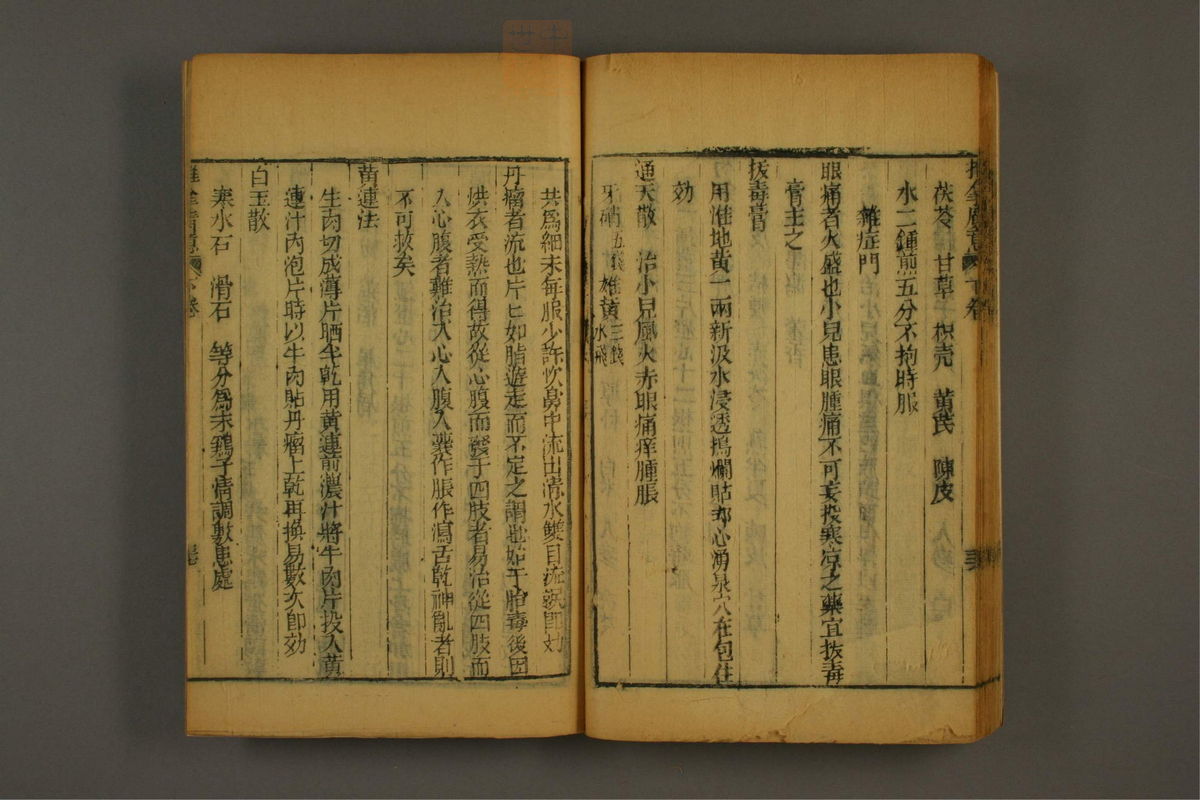 推拿廣意 下卷
茯苓 甘草 枳壳 黄芪 陳皮
水二鍾煎五分不拘時服
雜症門
眼痛者火盛也小兒患眼腫痛不可妄投寒凉之藥宜拔毒
膏主之
拔毒膏
用淮地黄一兩新汲水浸透搗爛貼脚心湧泉穴在包住
効
通天散 治小兒風火赤眼痛痒腫脹
牙硝五錢 雄黄三錢水飛
共爲細末每服少許吹鼻中流出清水雙目流淚即効
丹瘤者流也片片如脂遊走而不定之謂也始于胎毒後因
烘衣受熱而得故從心腹而發于四肢者易治從四肢而
入心腹者難治入心入腹入囊作脹作瀉舌乾神亂者則
不可救矣
黄連法
生肉切成薄片晒半乾用黄連煎濃汁將牛肉片投入黄
連汁内泡片時以牛肉貼丹瘤上乾再換易數次即効
白玉散
寒水石 滑石 等分爲末鷄子清調敷患處
推拿廣意 下卷